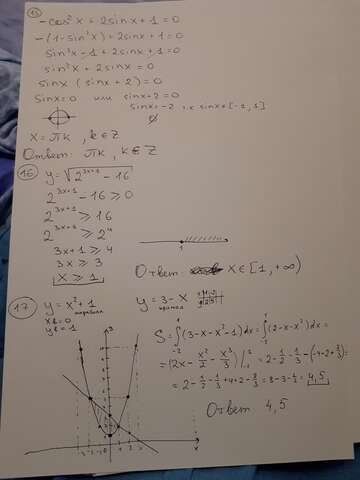 15
-cos²x + 2sinx + 1 = 0
-(1-sin²x) + 2sinx + 1 = 0
sin²x - 1 + 2sinx + 1 = 0
sin²x + 2sinx = 0
sinx (sinx + 2) = 0
sinx = 0 или sinx + 2 = 0
sinx = -2 т.к sinx ∈ [-1, 1]
∅
x = πk , k ∈ Z
Ответ: πk , k ∈ Z
16 y = √(2^(3x+1) - 16)
2^(3x+1) - 16 ≥ 0
2^(3x+1) ≥ 16
2^(3x+1) ≥ 2⁴
3x+1 ≥ 4
3x ≥ 3
x ≥ 1
1
Ответ x ∈ [1, +∞)
17 y = x² + 1
парабола
xв = 0
yв = 1
y = 3 - x
прямая
S = ∫₋₂¹ (3-x-x²-1)dx = ∫₋₂¹ (2-x-x²)dx =
= (2x - x²/2 - x³/3) |₋₂¹ = 2 - 1/2 - 1/3 - (-4-2+8/3) =
= 2 - 1/2 - 1/3 + 4 + 2 - 8/3 = 8 - 3 - 1/2 = 4,5
Ответ 4,5